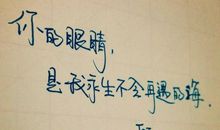 你的眼睛，
是我永生不会再遇的海.